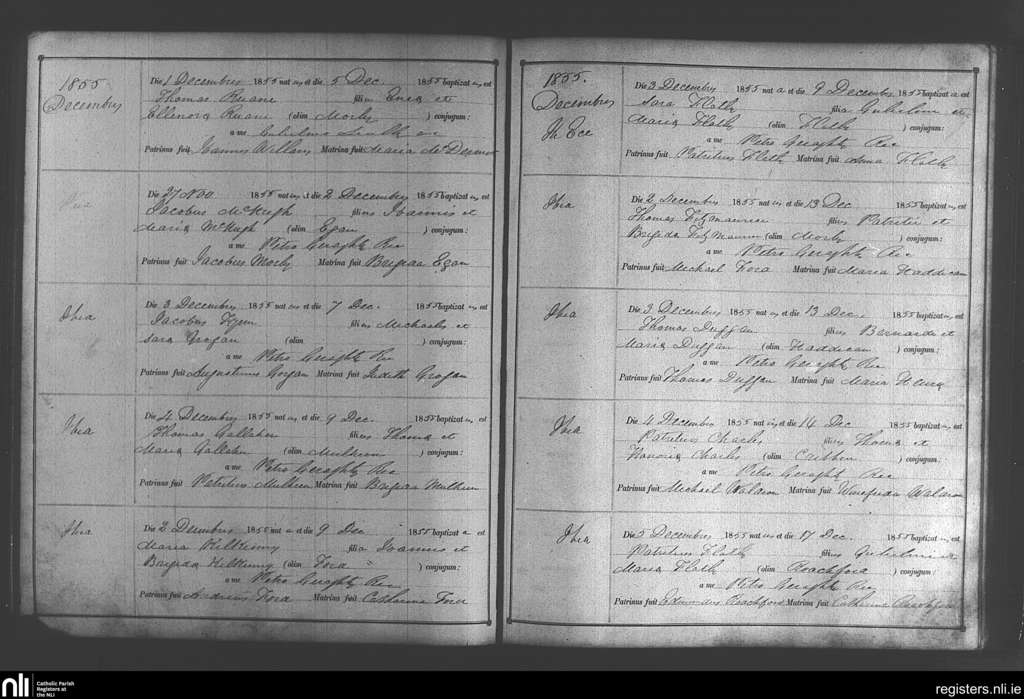 1855
Decembris
Die 1 Decembris 1855 nat us et die 5 Dec. 1855 baptizat us est
Thomas Ruane filius et
Ellenora Ruane (olim Morly ) conjugum:
a me
Patrinus fuit Matrina fuit Maria McDermot
Die 27 Nov 1855 nat us et die 2 Decembris 1855 baptizat us est
Jacobus McHugh filius Joannis et
Maria McHugh (olim Egan ) conjugum:
a me Petro Geraghty
Patrinus fuit Jacobus Morly Matrina fuit Brigida Egan
Ibia
Die 3 Decembris 1855 nat us et die 7 Dec. 1855 baptizat us est
Jacobus filius Michaelis et
Sara Grogan (olim ) conjugum:
a me Petro Geraghty
Patrinus fuit Augustinus Matrina fuit Judith Grogan
Ibia
Die 4 Decembris 1855 nat us et die 9 Dec. 1855 baptizat us est
Thomas Gallaher filius Thoma et
Maria Gallaher (olim Mulkern ) conjugum:
a me Petro Geraghty
Patrinus fuit Patritius Mulkern Matrina fuit Brigida Mulkern
Ibia
Die 2 Decembris 1855 nat a et die 9 Dec 1855 baptizat a est
Maria Kilkenny filia Joannis et
Brigida Kilkenny (olim Ford ) conjugum:
a me Petro Geraghty
Patrinus fuit Andreas Ford Matrina fuit Catharina Ford
1855.
Decembris
Die 3 Decembris 1855 nat a et die 9 Decembris 1855 baptizat a est
Sara Flatly filia Gulielmi et
Maria Flatly (olim Flatly ) conjugum:
a me Petro Geraghty
Patrinus fuit Patritius Flatly Matrina fuit Anna Flatly
Ibia
Die 2 Decembris 1855 nat us et die 13 Dec 1855 baptizat us est
Thomas Fitzmaurice filius Patritii et
Brigida Fitzmaurice (olim Morly ) conjugum:
a me Petro Geraghty
Patrinus fuit Michael Ford Matrina fuit Maria Haddican
Ibia
Die 3 Decembris 1855 nat us et die 13 Decem 1855 baptizat us est
Thomas Duggan filius Bernardi et
Maria Duggan (olim Haddican ) conjugum:
a me Petro Geraghty
Patrinus fuit Thomas Duggan Matrina fuit Maria
Ibia
Die 4 Decembris 1855 nat us et die 14 Dec 1855 baptizat us est
Patritius Charles filius Thoma et
Honoria Charles (olim Cribbin ) conjugum:
a me Petro Geraghty
Patrinus fuit Michael Waldron Matrina fuit Winefrida Waldron
Ibia
Die 5 Decembris 1855 nat us et die 17 Dec. 1855 baptizat us est
Patritius Flatly filius Gulielmi et
Maria Flatly (olim Roachford ) conjugum:
a me Petro Geraghty
Patrinus fuit Edmundus Roachford Matrina fuit Catharina Roachford
nli
Catholic Parish
Registers at
the NLI
registers.nli.ie